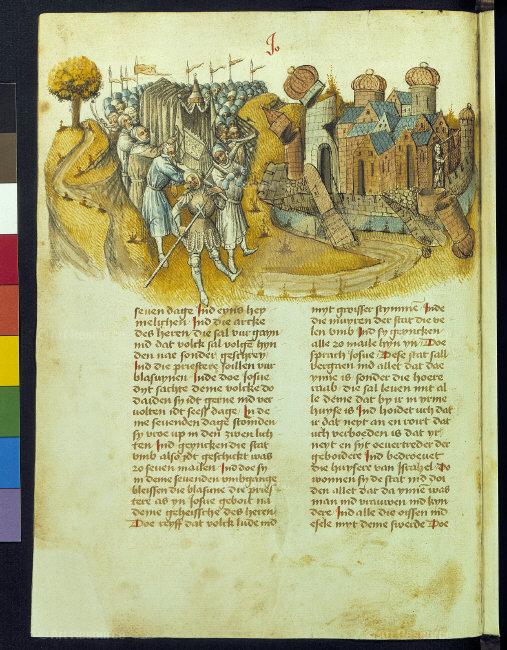 Jo
seuen dage Ind eyns hey
melighen Ind die arcke
des heren die sal vur gayn
ind dat volck sal volgen hyn
den nae sonder geschrey
Ind die priestere soillen vur
blasuynen Inde doe Josue
dyt sachte deme volcke do
daiden sy idt gerne ind ver
volten idt seess dage In de
me seuenden dage stoinden
sy vroe up in den zwen lich
ten Ind geyncken die stat
vmb also idt geschickt was
zo seuen mailen Ind doe sy
in deme seuenden umbgange
bleissen die blasune die pries
tere as yn Josue geboit na
deme geheissche des heren
Doe reyff dat volck lude ind
myt groisser stymmen Inde
die muyren der stat die ve
len vmb Ind sy geyncken
alle zo maile hyn yn Doe
sprach Josue Dese stat sall
vergaen ind allet dat dae
ynne is sonder die hoere
raab die sal leuen mit al
le deme dat by ir in yrme
huyse is Ind hoidet uch dat
ir dat neyt an en roirt dat
uch verboeden is dat yr
neyt en syt oeuertreder der
geboidere Ind bedroeuet
die huysere van Israhel Do
wonnen sy de stat ind doi
den allet dat da ynne was
man ind vrauwen ind kyn
dere Ind alle die oissen ind
esele myt deme swerde Doe